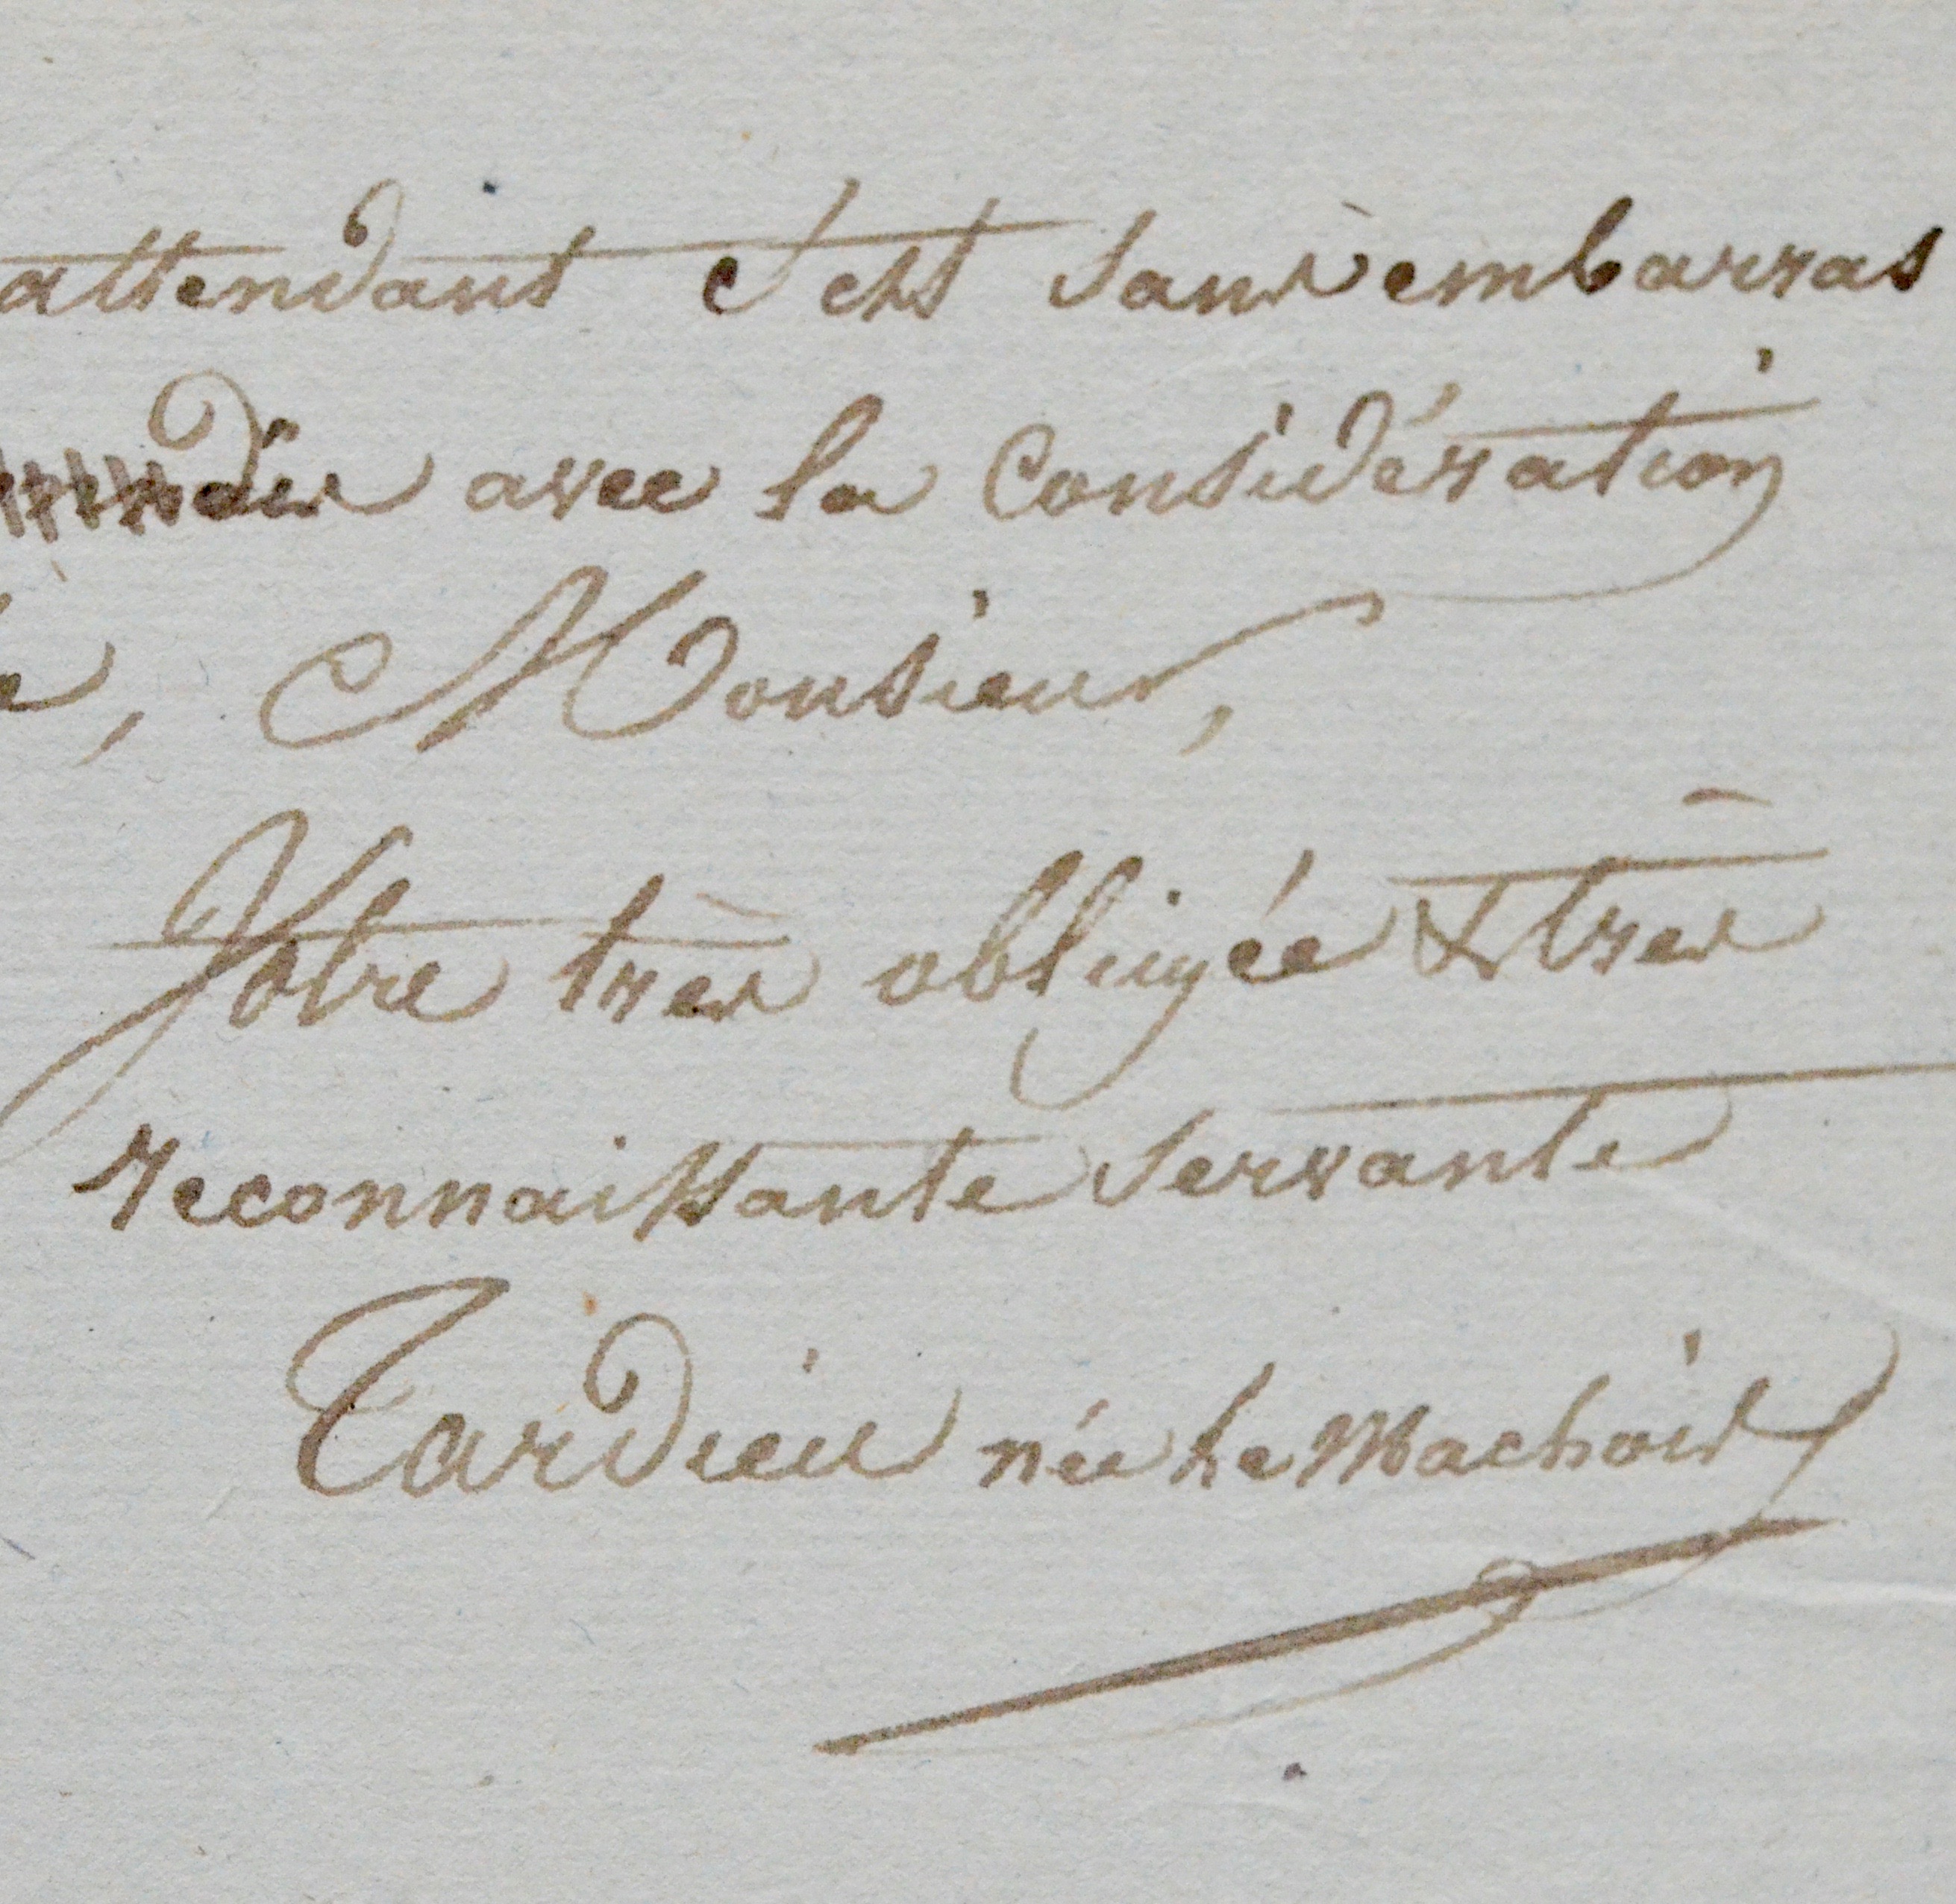 attendant C'est sans embarras
dis avec la Considération
, Monsieur,
Votre très obligée & très
reconnaissante Servante
Tardieu née Le Machois